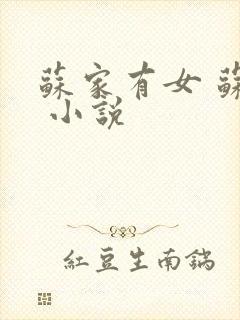 蘇家有女 蘇
小説
紅豆生南鍋